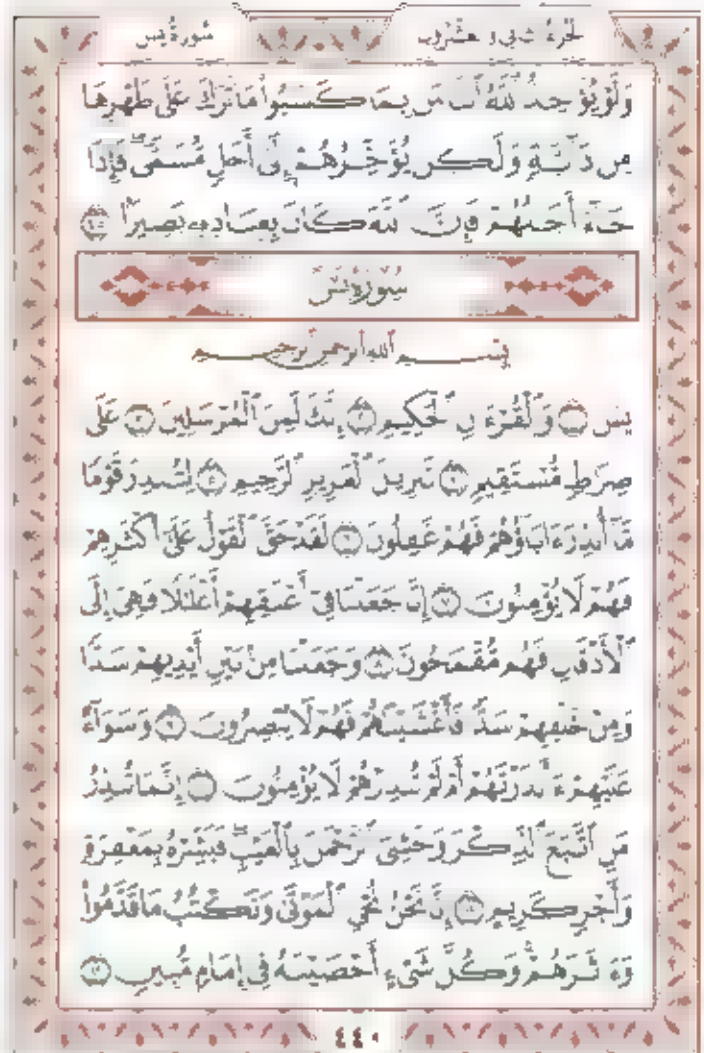 سورة يس الجزء الثاني والعشرون
وَلَوْ يُؤَاخِذُ ٱللَّهُ ٱلنَّاسَ بِمَا كَسَبُوا۟ مَا تَرَكَ عَلَىٰ ظَهْرِهَا
مِن دَآبَّةٍ وَلَٰكِن يُؤَخِّرُهُمْ إِلَىٰٓ أَجَلٍ مُّسَمًّى ۖ فَإِذَا
جَآءَ أَجَلُهُمْ فَإِنَّ ٱللَّهَ كَانَ بِعِبَادِهِۦ بَصِيرًۢا ٤٥
سُورَةُ يسٓ
بِسْمِ ٱللَّهِ ٱلرَّحْمَٰنِ ٱلرَّحِيمِ
يسٓ ١ وَٱلْقُرْءَانِ ٱلْحَكِيمِ ٢ إِنَّكَ لَمِنَ ٱلْمُرْسَلِينَ ٣ عَلَىٰ
صِرَٰطٍ مُّسْتَقِيمٍ ٤ تَنزِيلَ ٱلْعَزِيزِ ٱلرَّحِيمِ ٥ لِتُنذِرَ قَوْمًا
مَّآ أُنذِرَ ءَابَآؤُهُمْ فَهُمْ غَٰفِلُونَ ٦ لَقَدْ حَقَّ ٱلْقَوْلُ عَلَىٰٓ أَكْثَرِهِمْ
فَهُمْ لَا يُؤْمِنُونَ ٧ إِنَّا جَعَلْنَا فِىٓ أَعْنَٰقِهِمْ أَغْلَٰلًا فَهِىَ إِلَى
ٱلْأَذْقَانِ فَهُم مُّقْمَحُونَ ٨ وَجَعَلْنَا مِنۢ بَيْنِ أَيْدِيهِمْ سَدًّا
وَمِنْ خَلْفِهِمْ سَدًّا فَأَغْشَيْنَٰهُمْ فَهُمْ لَا يُبْصِرُونَ ٩ وَسَوَآءٌ
عَلَيْهِمْ ءَأَنذَرْتَهُمْ أَمْ لَمْ تُنذِرْهُمْ لَا يُؤْمِنُونَ ١٠ إِنَّمَا تُنذِرُ
مَنِ ٱتَّبَعَ ٱلذِّكْرَ وَخَشِىَ ٱلرَّحْمَٰنَ بِٱلْغَيْبِ ۖ فَبَشِّرْهُ بِمَغْفِرَةٍ
وَأَجْرٍ كَرِيمٍ ١١ إِنَّا نَحْنُ نُحْىِ ٱلْمَوْتَىٰ وَنَكْتُبُ مَا قَدَّمُوا۟
وَءَاثَٰرَهُمْ ۚ وَكُلَّ شَىْءٍ أَحْصَيْنَٰهُ فِىٓ إِمَامٍ مُّبِينٍ ١٢
٤٤٠